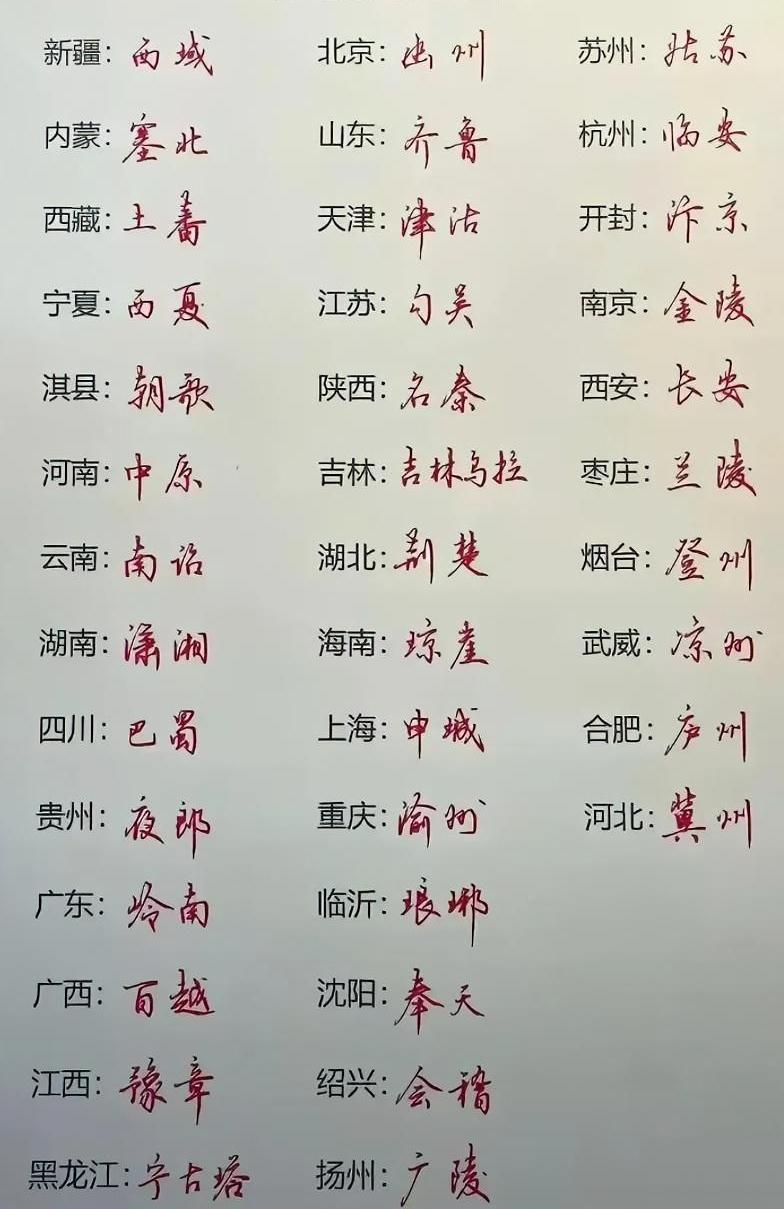 新疆：西域 北京：幽州 苏州：姑苏
内蒙：塞北 山东：齐鲁 杭州：临安
西藏：土蕃 天津：津沽 开封：汴京
宁夏：西夏 江苏：勾吴 南京：金陵
淇县：朝歌 陕西：名秦 西安：长安
河南：中原 吉林：吉林乌拉 枣庄：兰陵
云南：南诏 湖北：荆楚 烟台：登州
湖南：潇湘 海南：琼崖 武威：凉州
四川：巴蜀 上海：申城 合肥：庐州
贵州：夜郎 重庆：渝州 河北：冀州
广东：岭南 临沂：琅琊
广西：百越 沈阳：奉天
江西：豫章 绍兴：会稽
黑龙江：宁古塔 扬州：广陵